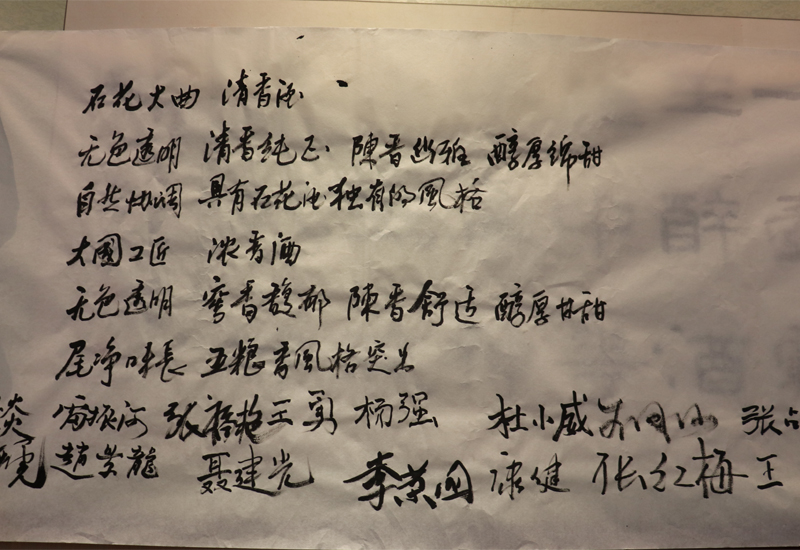 石花大曲 清香酒
无色透明 清香纯正 陳香幽雅 醇厚绵甜
自然协调 具有石花酒独有的風格
大國工匠 浓香酒
无色透明 窖香馥郁 陳香舒适 醇厚甘甜
尾净味長 五粮香風格突出
张 王勇 杨强 杜小威 张
聂建光 李 国 康健 张红梅 王